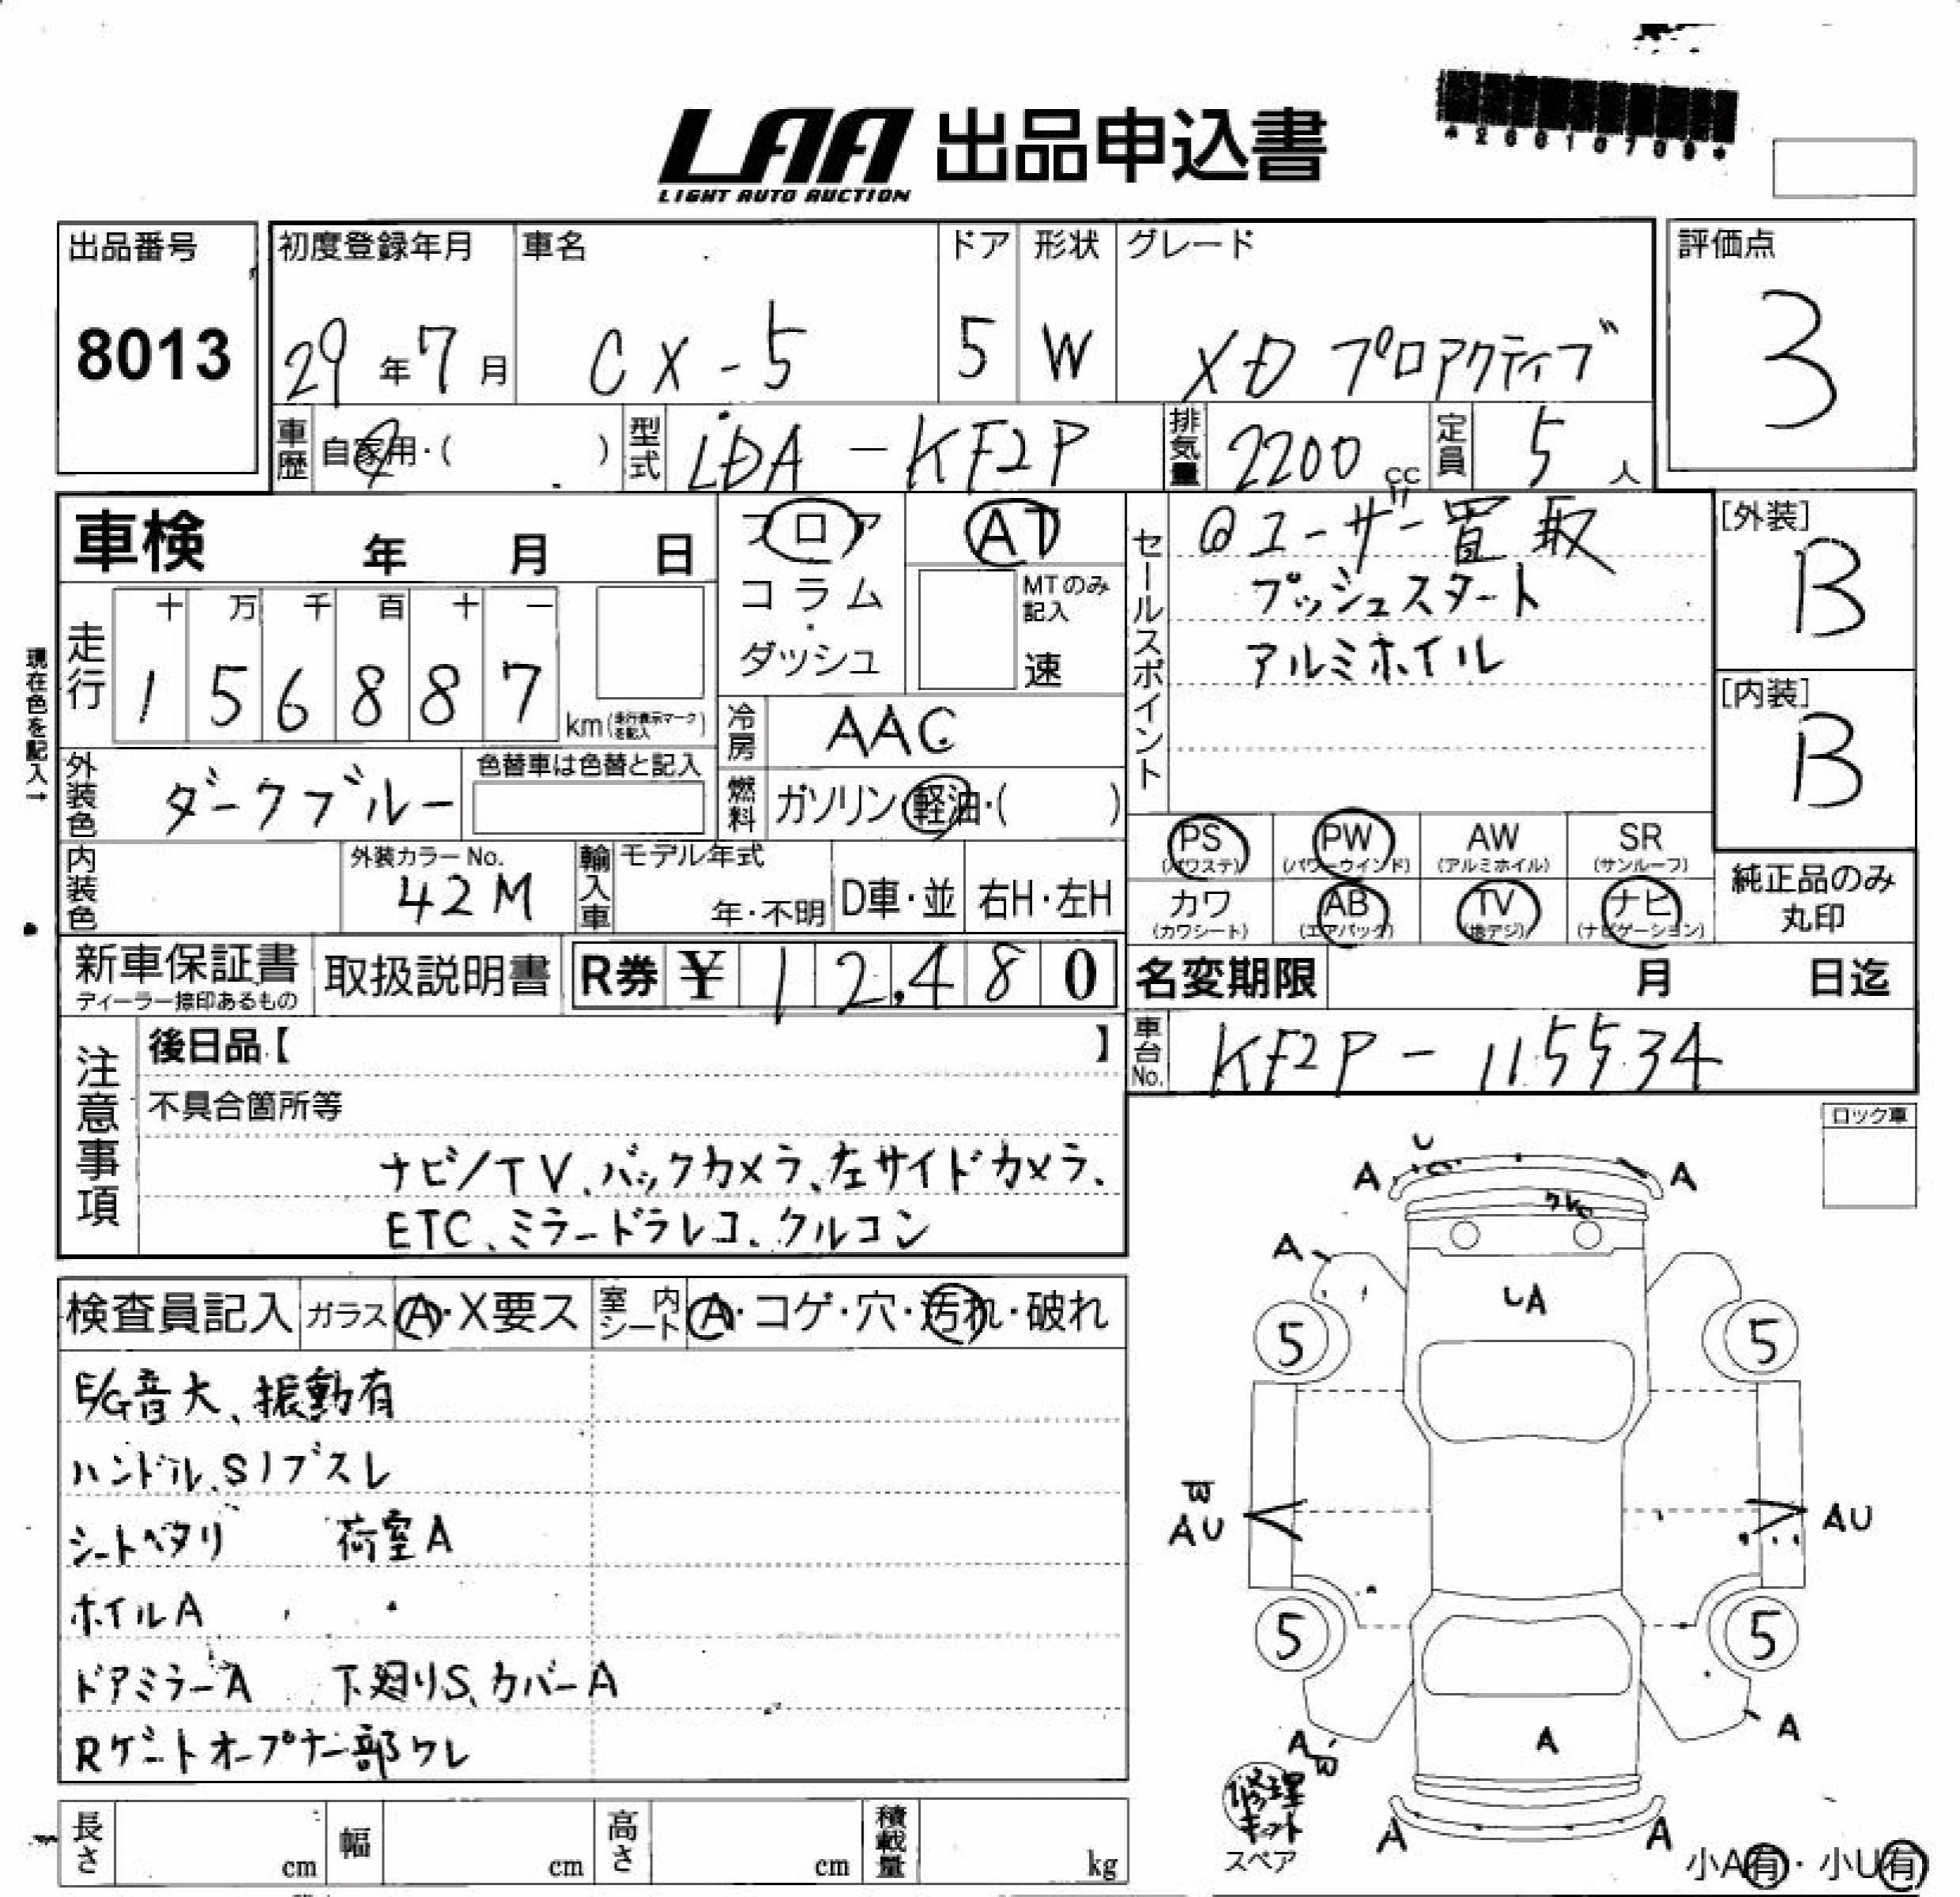 *26010709*
LAA 出品申込書
LIGHT AUTO AUCTION
出品番号
8013
初度登録年月
29年7月
車名
CX-5
ドア
5
形状
W
グレード
XD プロアクティブ
評価点
3
車歴 自家用・( )
型式 LDA-KF2P
排気量 2200cc
定員 5人
車検 年 月 日
フロア
コラム
・
ダッシュ
AT
MTのみ記入
速
セールスポイント
@ユーザー買取
プッシュスタート
アルミホイル
[外装]
B
[内装]
B
現在色を記入→
走行
十 万 千 百 十 一
1 5 6 8 8 7
km(走行表示マークを記入)
冷房 AAC
外装色 ダークブルー
色替車は色替と記入
燃料 ガソリン・軽油・( )
PS (パワステ)
PW (パワーウインド)
AW (アルミホイル)
SR (サンルーフ)
カワ (カワシート)
AB (エアバック)
TV (地デジ)
ナビ (ナビゲーション)
純正品のみ
丸印
内装色
外装カラーNo.
42M
輸入車
モデル年式
年・不明
D車・並
右H・左H
新車保証書
ディーラー捺印あるもの
取扱説明書
R券 ¥ 12,480
名変期限 月 日迄
車台No. KF2P-115534
注意事項
後日品【 】
不具合箇所等
ナビ/TV、バックカメラ、左サイドカメラ、
ETC、ミラードラレコ、クルコン
ロック車
検査員記入
ガラス A・X要ス
室内シート A・コゲ・穴・汚れ・破れ
E/G音大、振動有
ハンドル、Sノブスレ
シートヘタリ 荷室A
ホイルA
ドアミラーA 下廻りS、カバーA
Rゲートオープナー部ワレ
U
A
A
ワレ
A
UA
5
5
W
AU
AU
5
5
A
W
A
A
A
A
修理キット
スペア
小A有・小U有
長さ cm
幅 cm
高さ cm
積載量 kg